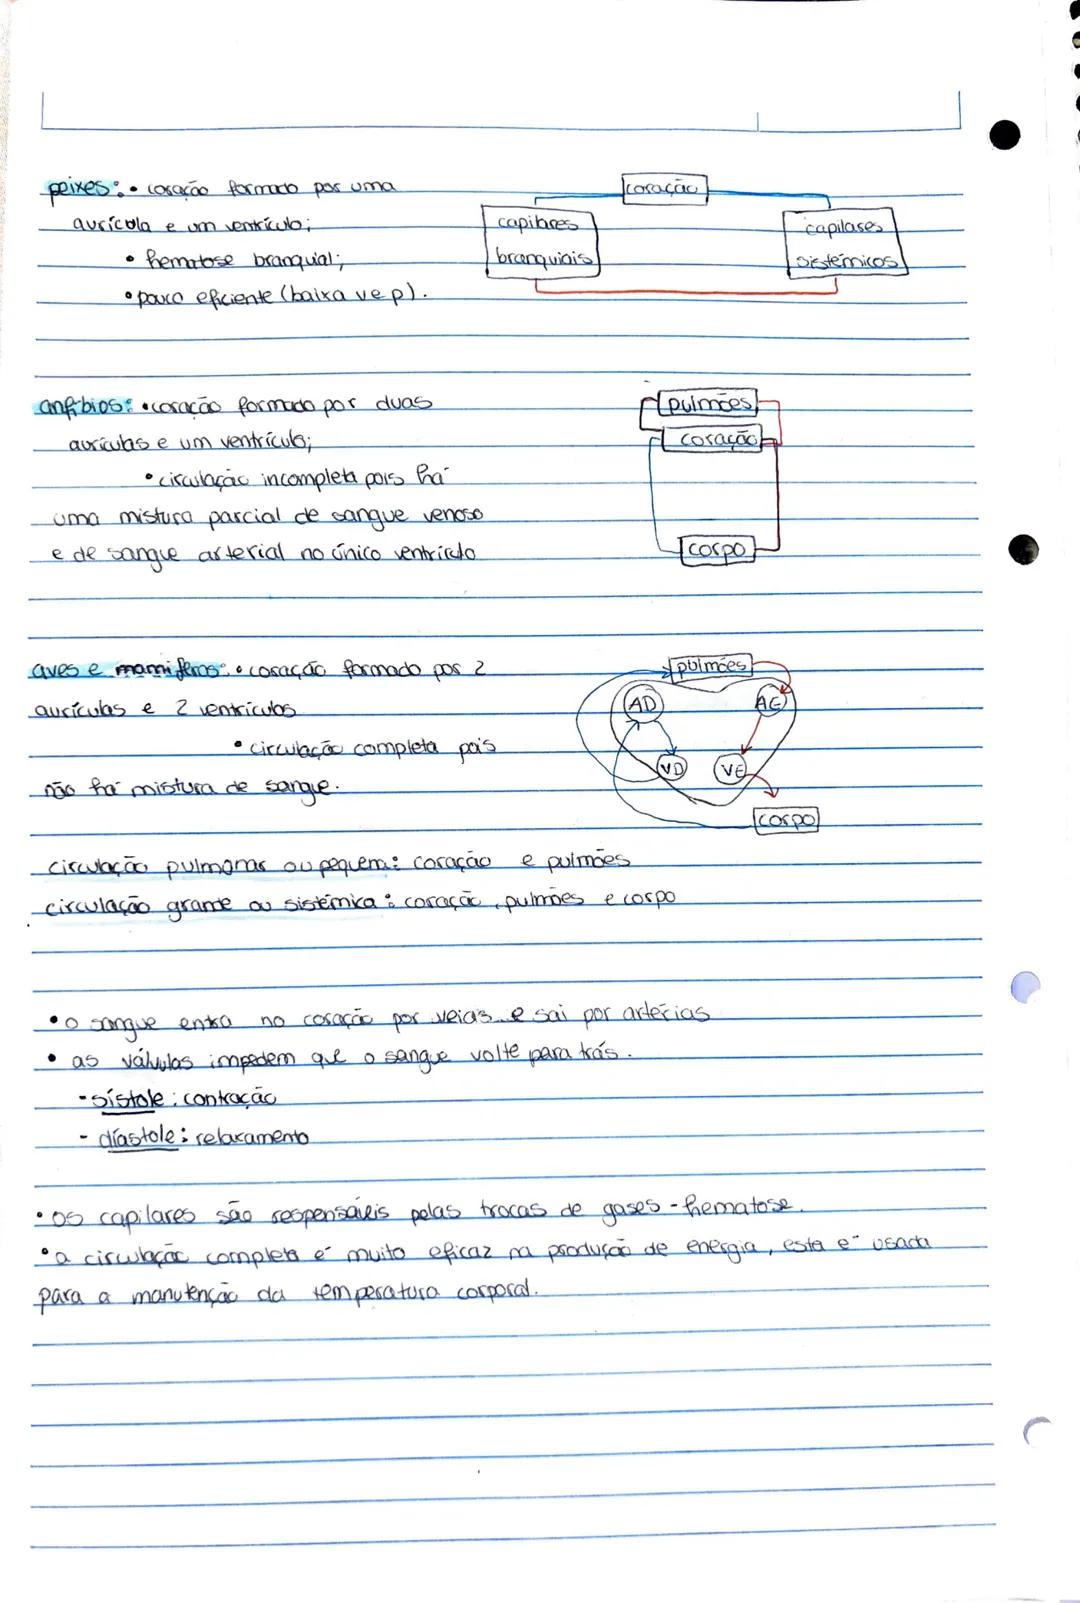 peixes: • coração formado por uma
aurícola e um ventrículo;
• hematose branquial;
• pouco eficiente (baixa v e p).
coração
capilares
branquiais
capilares
sistémicos
anfíbios: • coração formado por duas
aurículas e um ventrículo;
• circulação incompleta pois há
uma mistura parcial de sangue venoso
e de sangue arterial no único ventrículo
pulmões
coração
corpo
aves e mamíferos: • coração formado por 2
aurículas e 2 ventrículos
• circulação completa pois
não há mistura de sangue.
pulmões
AD
AE
VD
VE
corpo
circulação pulmonar ou pequena: coração e pulmões
circulação grande ou sistémica: coração, pulmões e corpo
• o sangue entra no coração por veias e sai por artérias
• as válvulas impedem que o sangue volte para trás.
- sístole: contração
- díastole: relaxamento
• os capilares são responsáveis pelas trocas de gases - hematose.
• a circulação completa é muito eficaz na produção de energia, esta é usada
para a manutenção da temperatura corporal.